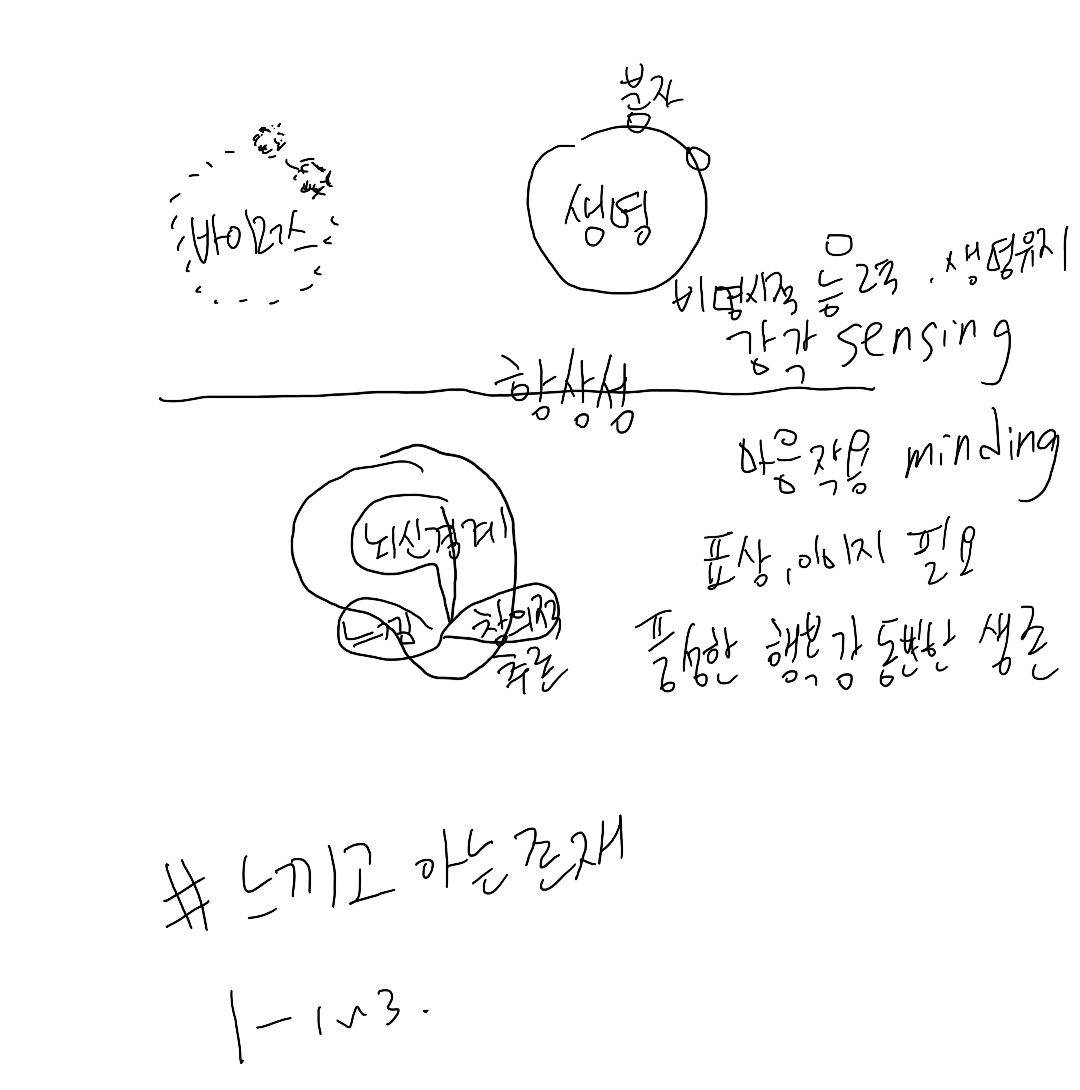 분자
바이러스
생명
비명시적 능력. 생명유지
감각 sensing
항상성
마음작용 minding
뇌신경계
표상, 이미지 필요
느낌 창의적
추론
풍성한 행복감 동반한 생존
# 느끼고 아는 존재
1-1~3.